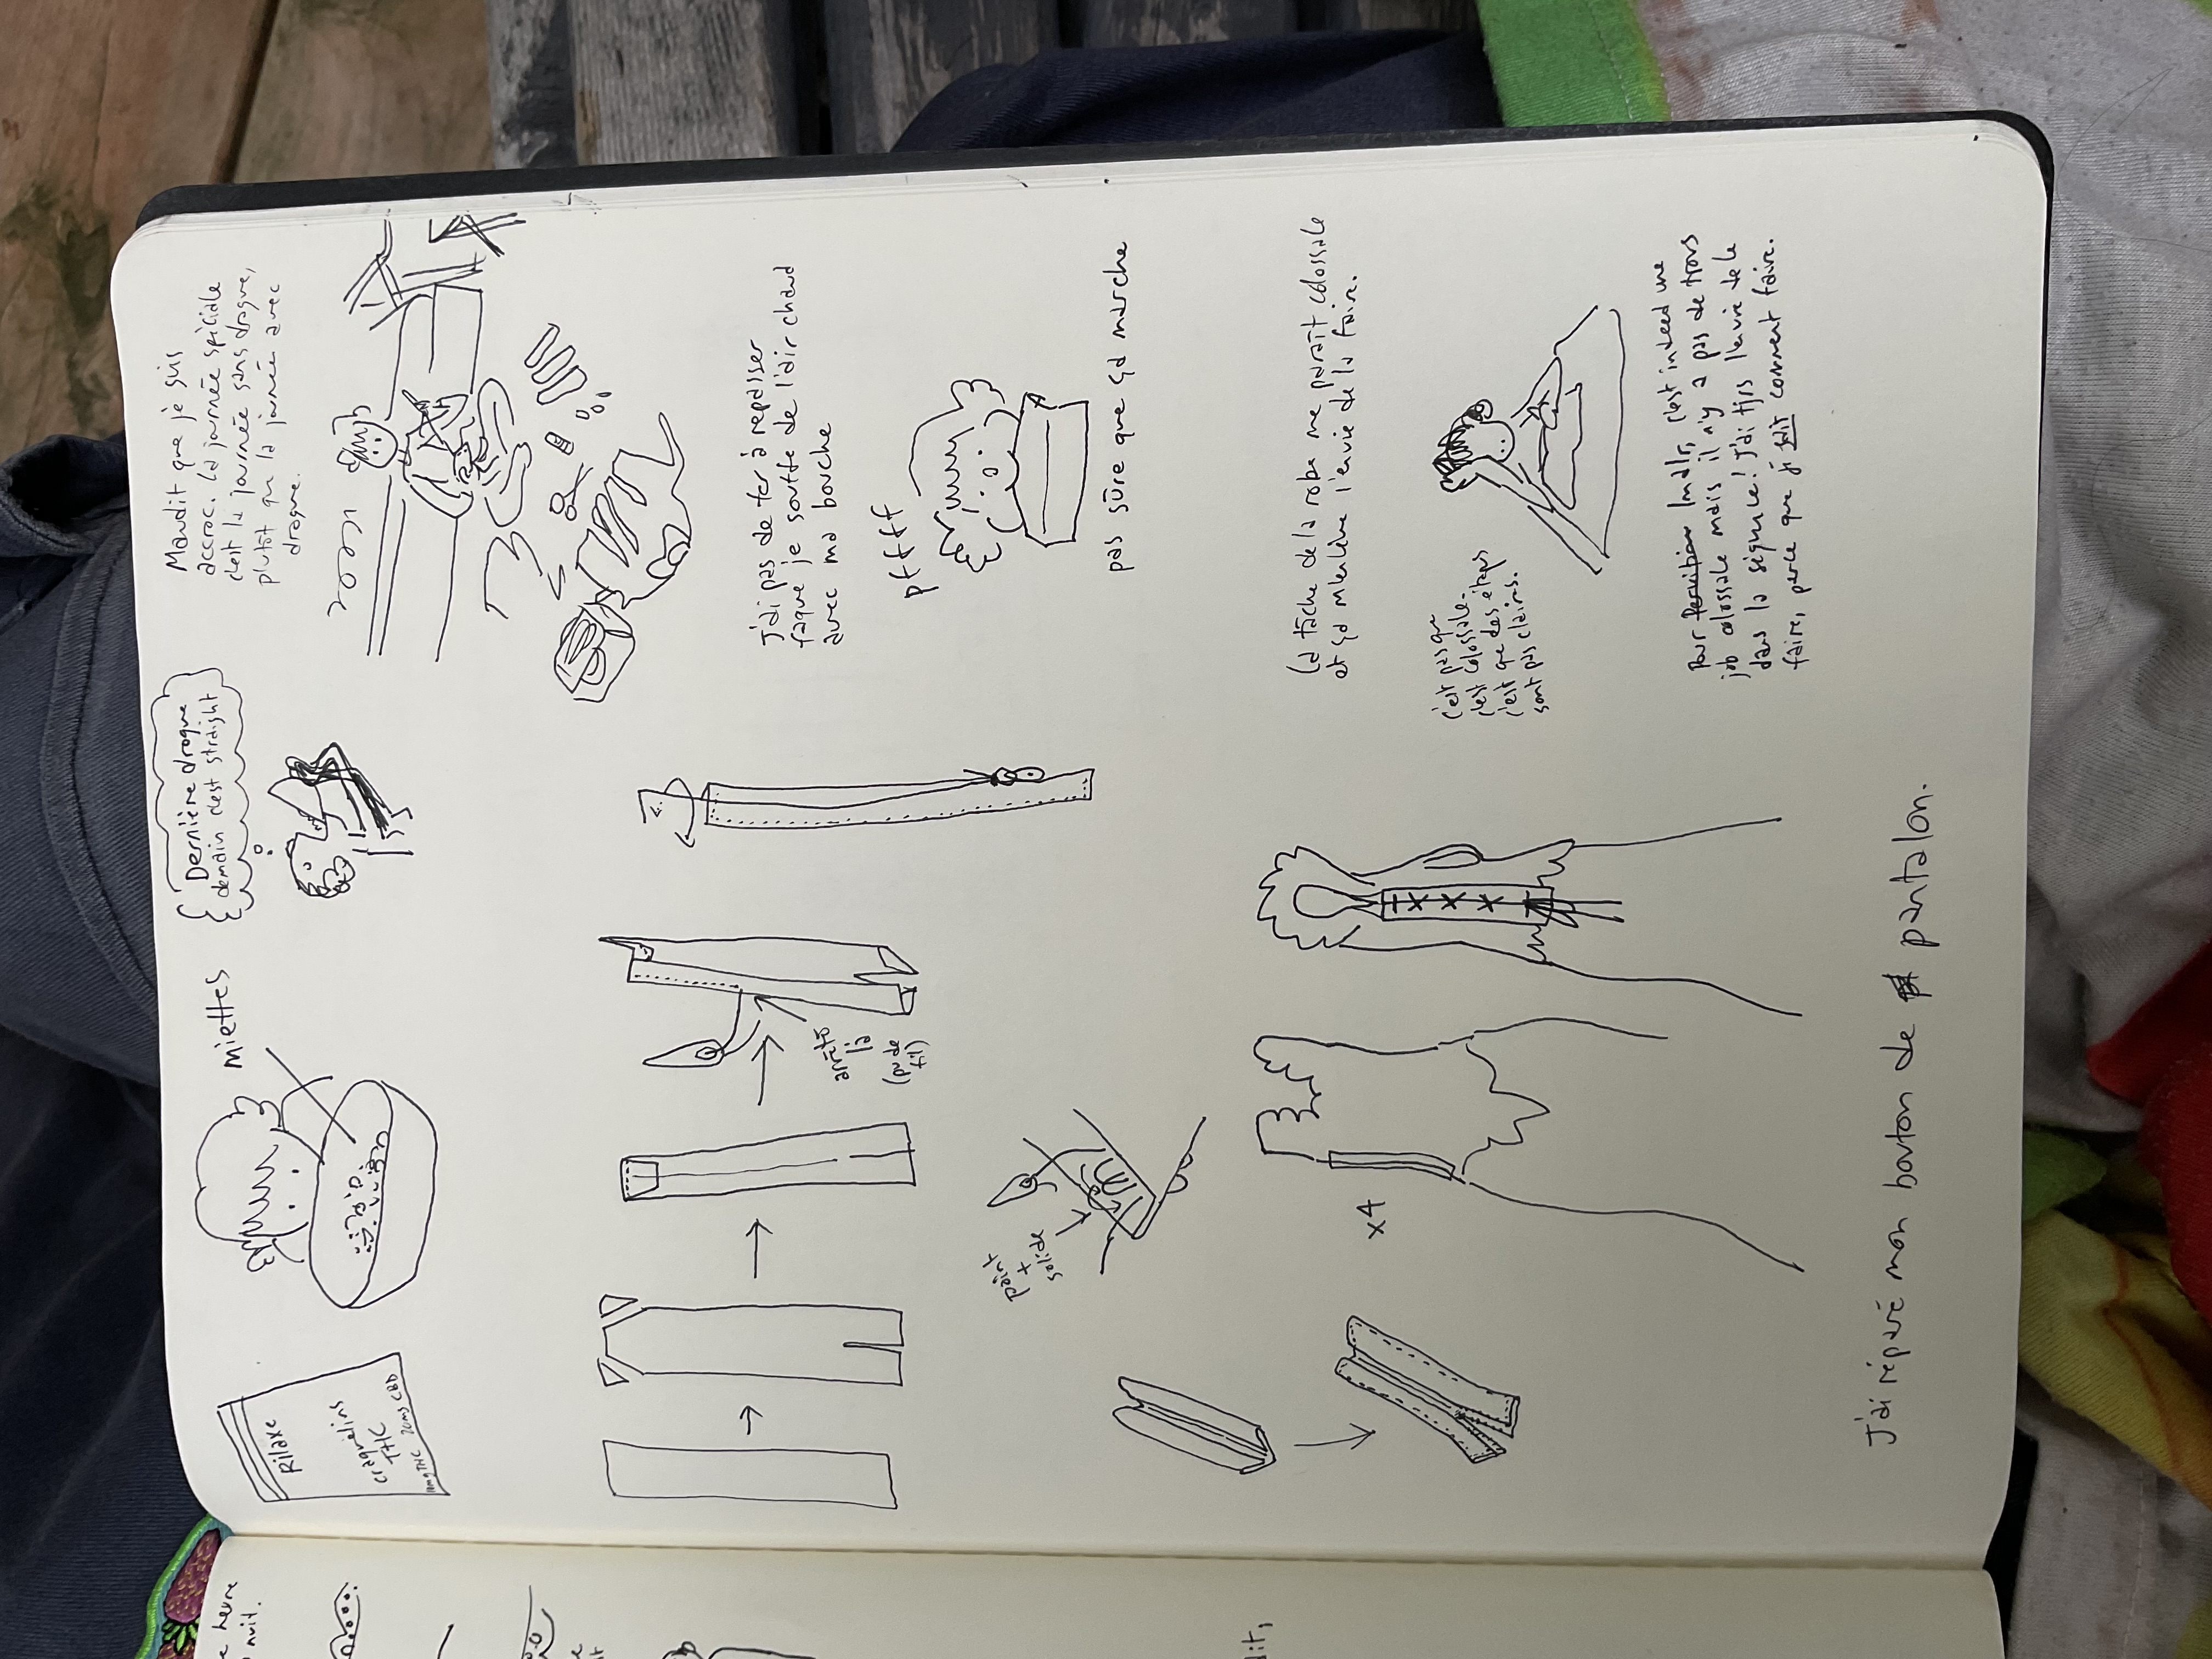 Rilaxe
craquelins
THC
10mg THC 20mg CBD
miettes
Dernière drogue
demain c'est straight
Maudit que je suis
accroc. La journée spéciale
c'est la journée sans drogue,
plutôt qu la journée avec
drogue.
arrête
là
(pu de
fil)
J'ai pas de fer à repasser
faque je soufle de l'air chaud
avec ma bouche
pffff
pas sûre que ça marche
point
+
solide
x4
La tâche de la robe me paraît colossale
et ça m'enlève l'envie de la faire.
c'est pas que
c'est colossale.
c'est que des étapes
sont pas claires.
Pour lmdlr, c'est indeed une
job colossale mais il n'y a pas de trous
dans la séquence! J'ai tjrs l'envie de le
faire, parce que j' sait comment faire.
J'ai réparé mon bouton de pantalon.
heure
nuit.
dit,